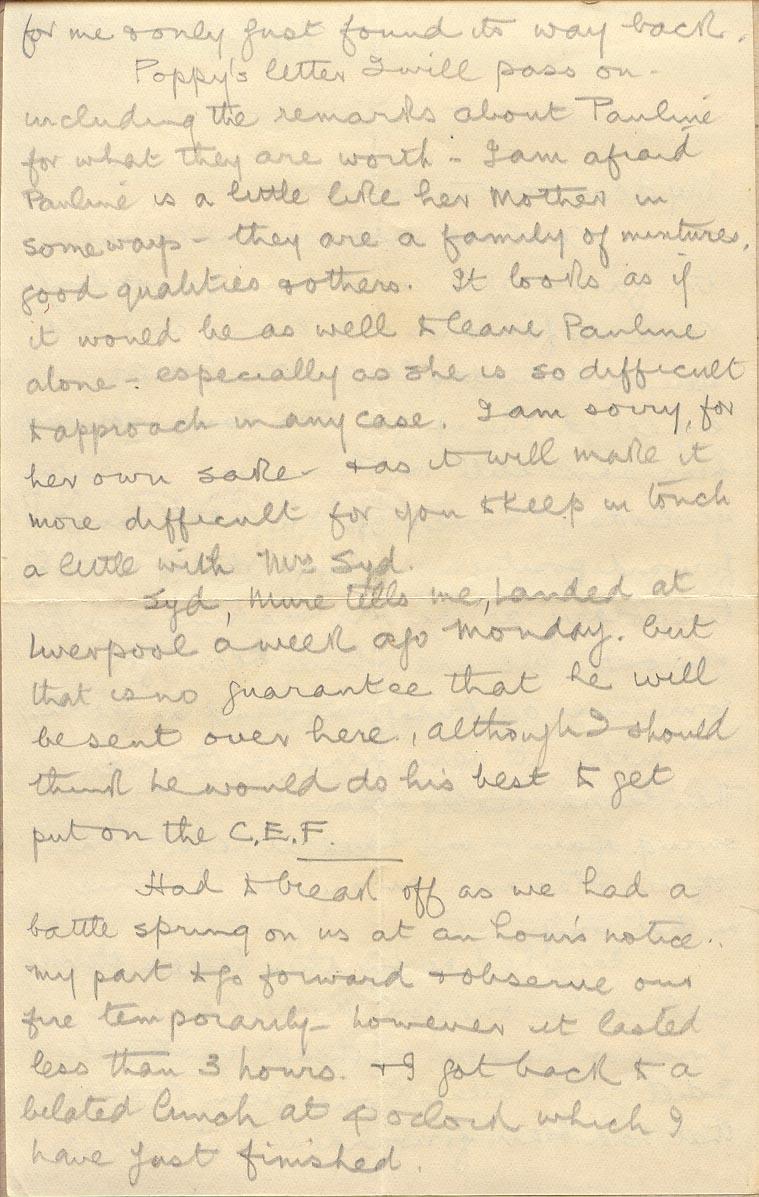 for me & only just found its way back.
Poppy's letter I will pass on -
including the remarks about Pauline
for what they are worth - I am afraid
Pauline is a little like her Mother in
some ways - they are a family of mixtures,
good qualities & others. It looks as if
it would be as well to leave Pauline
alone - especially as she is so difficult
to approach in any case. I am sorry, for
her own sake - & as it will make it
more difficult for you to keep in touch
a little with Mrs Syd.
Syd, Mure tells me, landed at
Liverpool a week ago Monday. but
that is no guarantee that he will
be sent over here, although I should
think he would do his best to get
put on the C.E.F.
Had to break off as we had a
battle sprung on us at an hour's notice..
My part to go forward & observe our
fire temporarily - however it lasted
less than 3 hours. & I got back to a
belated lunch at 4 o'clock which I
have just finished.